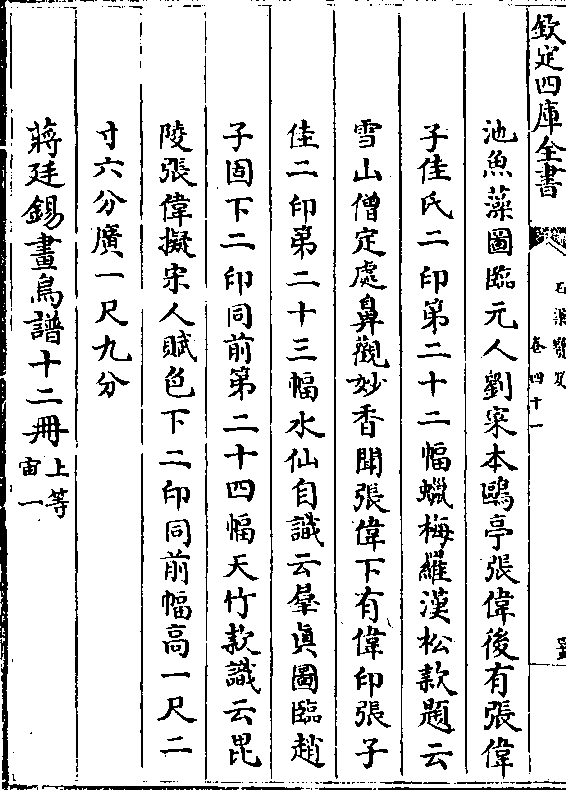 欽定四庫全書
石渠寶笈
卷四十一
池魚藻圖臨元人劉寀本鷗亭張偉後有張偉
子佳氏二印第二十二幅蠟梅羅漢松款題云
雪山僧定處鼻觀妙香聞張偉下有偉印張子
佳二印第二十三幅水仙自識云羣眞圖臨趙
子固下二印同前第二十四幅天竹款識云毘
陵張偉擬宋人賦色下二印同前幅高一尺二
寸六分廣一尺九分
蔣廷錫畫鳥譜十二冊上等宙一